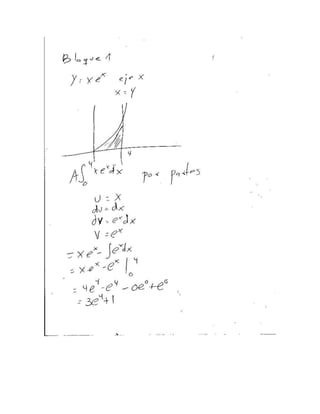 Bloque 1
y = xeˣ eje x
x = y
4
A∫₀⁴ xeˣdx por partes
U = x
du = dx
dv = eˣdx
V = eˣ
= xeˣ - ∫eˣdx
= xeˣ - eˣ |₀⁴
= 4e⁴ - e⁴ - 0e⁰ + e⁰
= 3e⁴ + 1